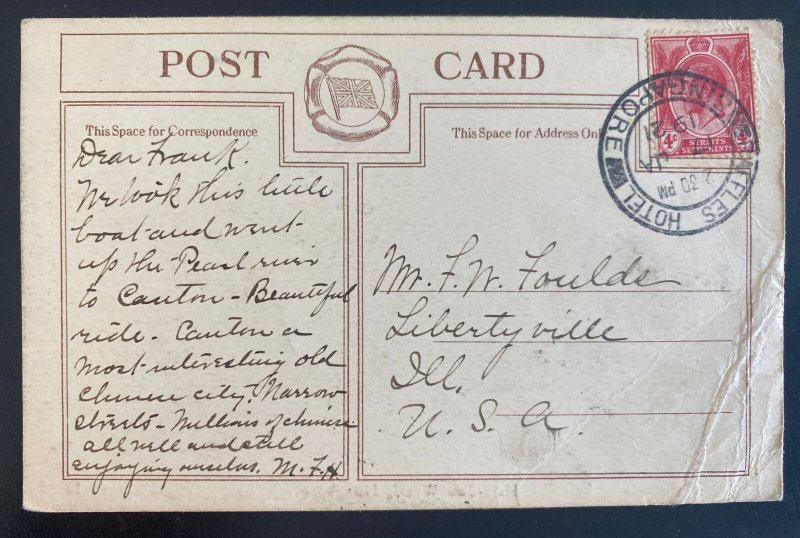 POST CARD
This Space for Correspondence
This Space for Address Only
Dear Frank.
We took this little
boat and went
up the Pearl river
to Canton - Beautiful
ride. Canton a
most interesting old
Chinese city. Narrow
streets - Millions of Chinese
all well and still
enjoying ourselves. M. F. H
Mr. F. W. Foulds
Libertyville
Ill.
U. S. A.
4c STRAITS 4c
SETTLEMENTS
SINGAPORE
RAFFLES HOTEL
2.30 PM
JA
1921